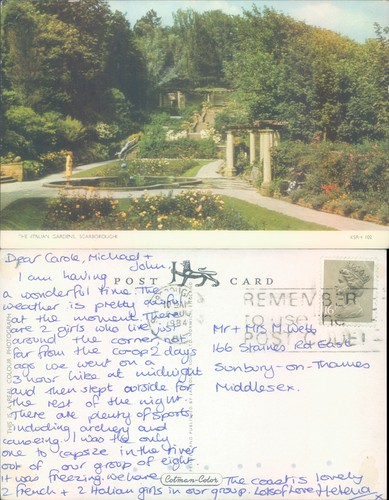 THE ITALIAN GARDENS, SCARBOROUGH
Dear Carole, Michael +
John,
I am having
a wonderful time. The
weather is pretty
at the moment. There
are 2 girls who live just
around the corner not
far from the coop. 2 days
ago we went on a
3 hour hike at midnight
and then slept outside for
the rest of the night.
There are plenty of sports
including archery and
canoeing. I was the only
one to capsize in the river
out of our group of eight
it was freezing. We have
1 French + 2 Italian girls in our group.
The coast is lovely
Lots of Love Helena
POST CARD
1984
REMEMBER
to use the
POSTCODE!
Mr + Mrs M Webb
166 Staines Rd East
Sunbury-on-Thames
Middlesex.
Colman-Color